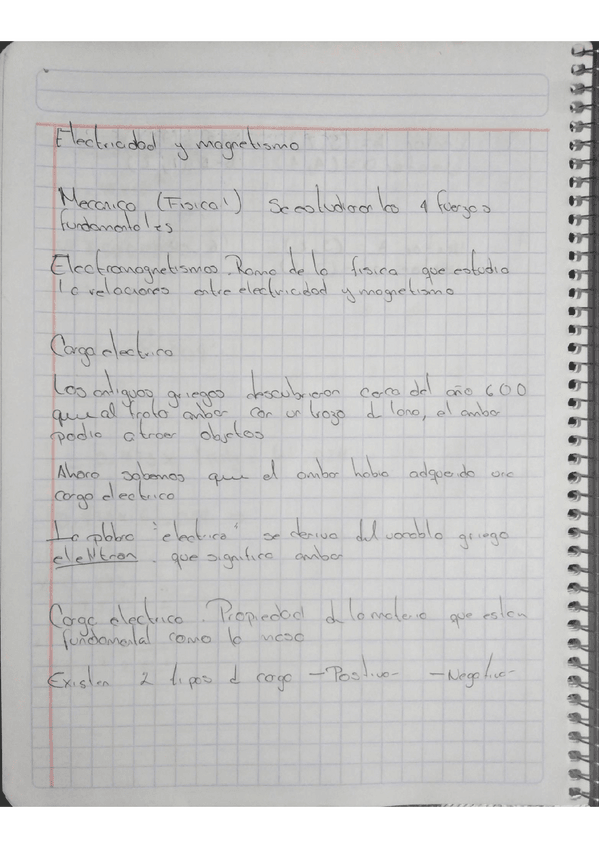 Electricidad y magnetismo
Mecanica (Fisica 1) Se estudiaron las 4 fuerzas
fundamentales
Electromagnetismos. Rama de la fisica que estudia
la relaciones entre electricidad y magnetismo
Carga electrica
Los antiguos griegos descubrieron cerca del año 600
que al frota ambar con un trozo d lana, el ambar
podia atraer objetos
Ahora sabemos que el ambar habia adquerido una
carga electrica
La plbra "electrica" se deriva del vocablo griego
elektron. que significa ambar
Carga electrica. Propiedad d la materia que es tan
fundamental como la masa
Existen 2 tipos d carga -Positiva- -Negativa-